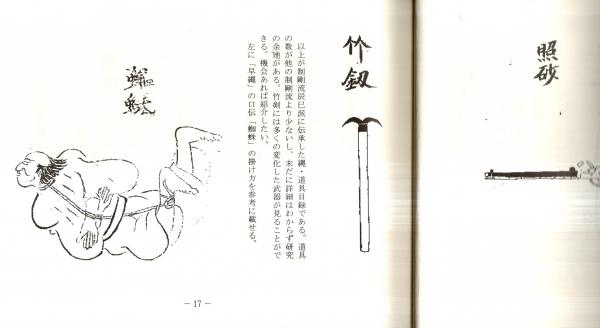 照砂
竹釼
以上が制剛流辰巳派に伝承した縄・道具目録である。道具
の数が他の制剛流より少ないし、未だに詳細はわからず研究
の余地がある。竹剣には多くの変化した武器が見ることがで
きる。機会あれば紹介したい。
左に「早縄」の口伝「蜘蛛」の掛け方を参考に載せる。
－17－